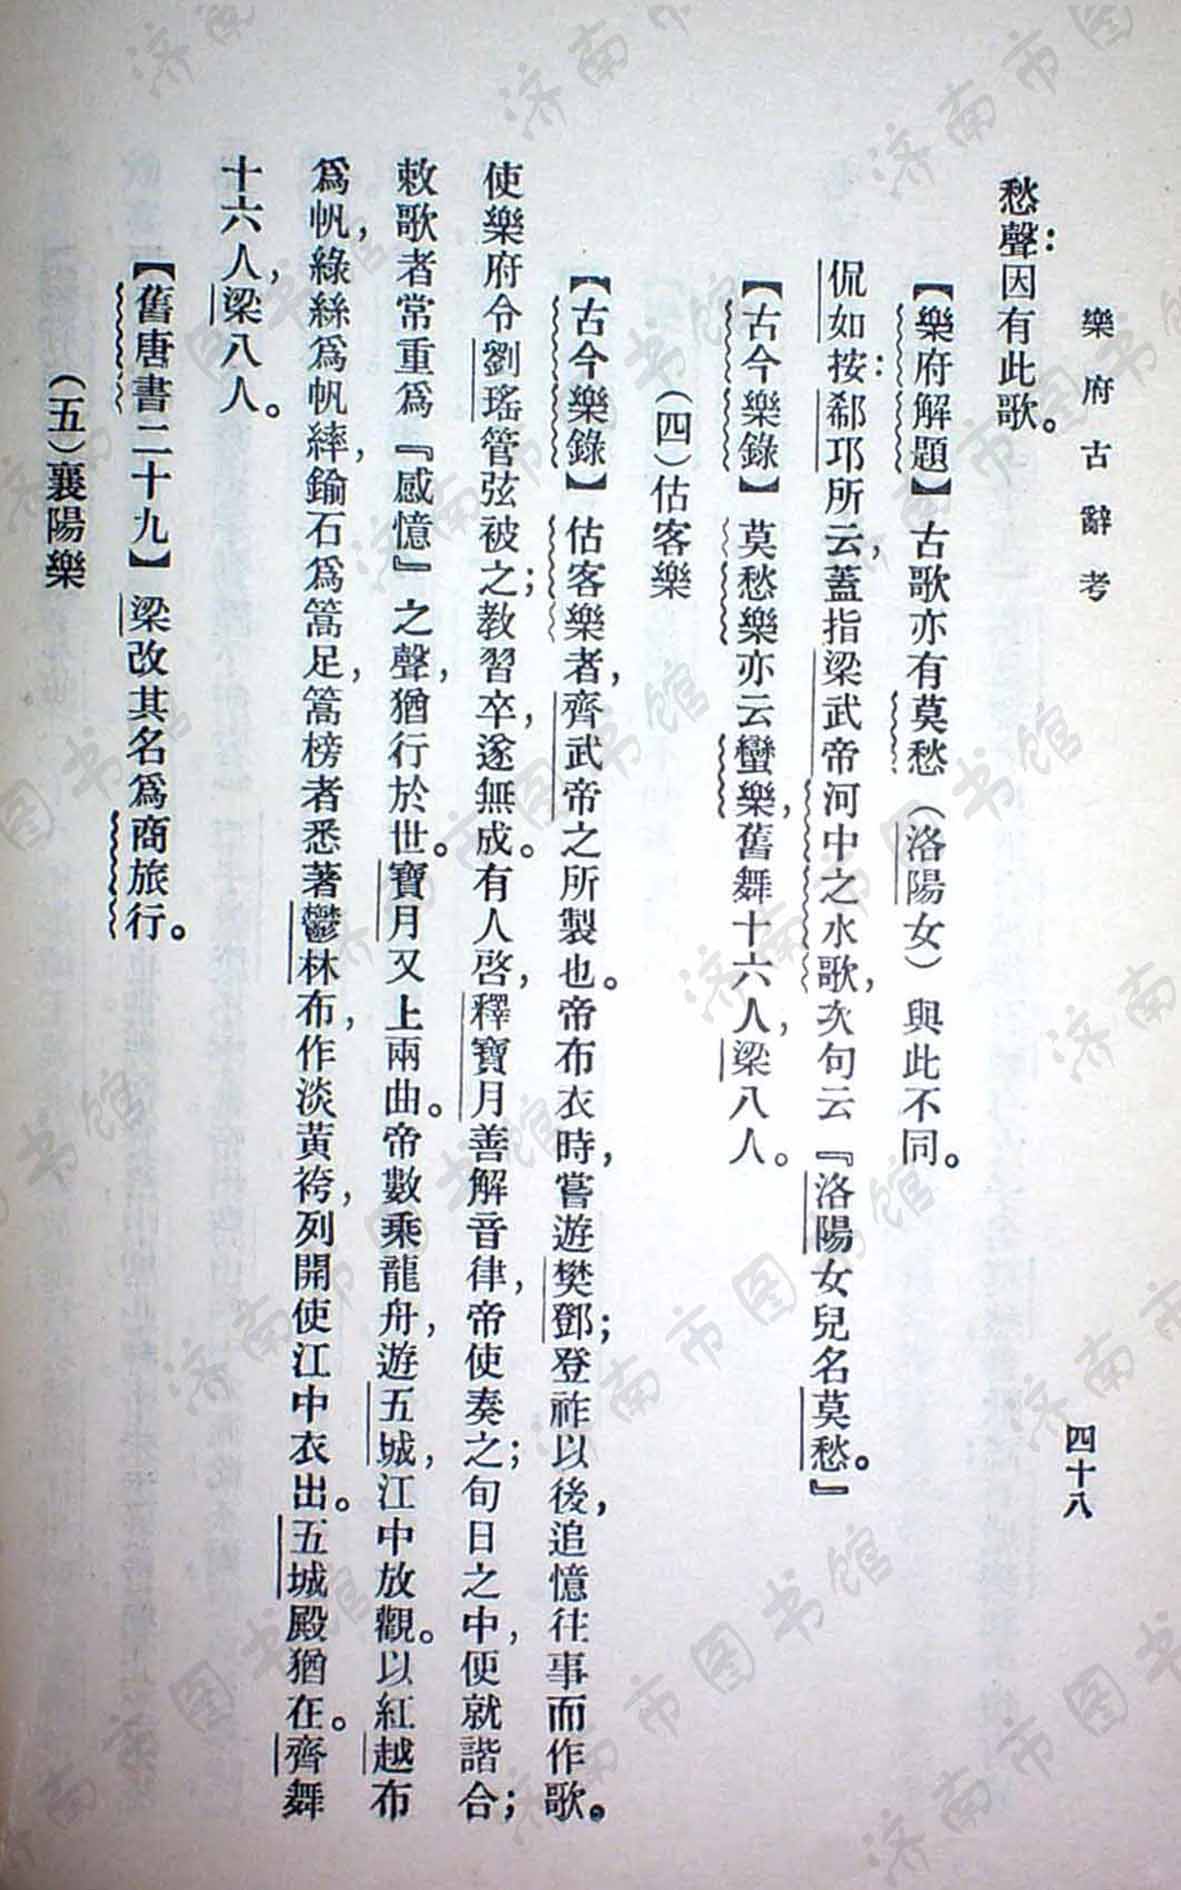 樂府古辭考
四十八
愁聲：因有此歌。
【樂府解題】古歌亦有莫愁（洛陽女）與此不同。
侃如按：郗邛所云，蓋指梁武帝河中之水歌，次句云『洛陽女兒名莫愁。』
【古今樂錄】莫愁樂亦云蠻樂，舊舞十六人，梁八人。
（四）估客樂
【古今樂錄】估客樂者，齊武帝之所製也。帝布衣時，嘗遊樊鄧；登祚以後，追憶往事而作歌。
使樂府令劉瑤管弦被之；教習卒，遂無成。有人啓，釋寶月善解音律，帝使奏之；旬日之中，便就諧合；
敕歌者常重爲『感憶』之聲，猶行於世。寶月又上兩曲。帝數乘龍舟，遊五城，江中放觀。以紅越布
爲帆，綠絲爲帆縴，鍮石爲篙足，篙榜者悉著鬱林布，作淡黃袴，列開使江中衣出。五城殿猶在。齊舞
十六人，梁八人。
【舊唐書二十九】梁改其名爲商旅行。
（五）襄陽樂
济南市图书馆